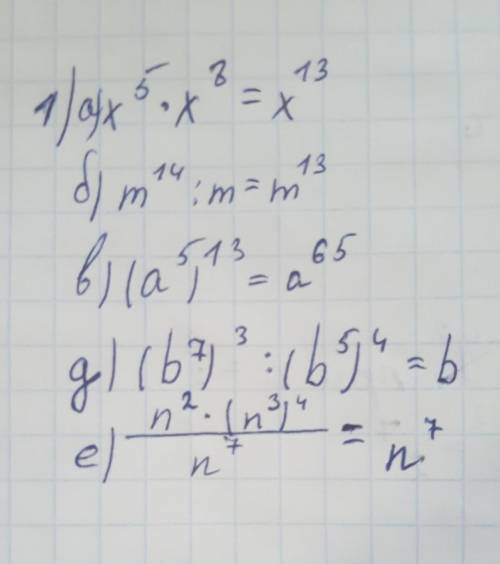 1) а) x⁵ · x⁸ = x¹³
б) m¹⁴ : m = m¹³
в) (a⁵)¹³ = a⁶⁵
д) (b⁷)³ : (b⁵)⁴ = b
е) n² · (n³)⁴ / n⁷ = n⁷